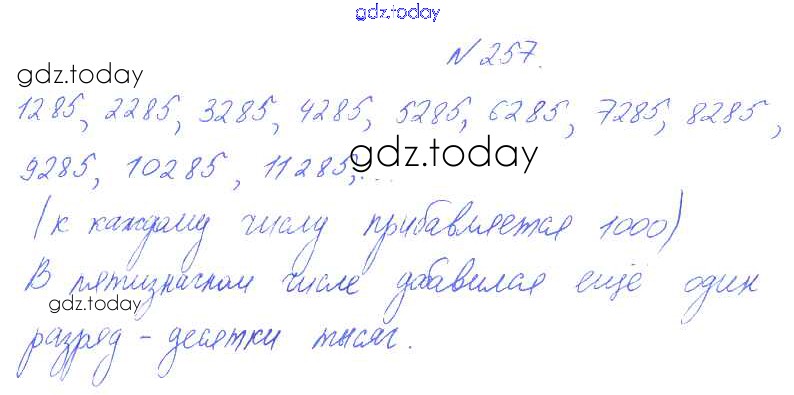 gdz.today
N 257.
gdz.today
1285, 2285, 3285, 4285, 5285, 6285, 7285, 8285,
9285, 10285, 11285,...
gdz.today
(к каждому числу прибавляется 1000)
В пятизначном числе добавился ещё один
gdz.today
разряд - десятки тысяч.